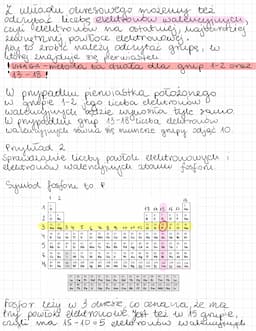 Z układu okresowego możemy też
odczytać liczbę elektronów walencyjnych,
czyli elektronów na ostatniej, najbardziej
zewnętrznej powłoce elektronowej.
Aby to zrobić należy odczytać grupę, w
której znajduje się pierwiastek
! UWAGA - metoda ta działa dla grup 1-2 oraz
13 - 18 !
W przypadku pierwiastka położonego
w grupie 1-2 jego liczba elektronów
walencyjnych będzie wynosiła tyle samo.
W przypadku grup 13-18 liczba elektronów
walencyjnych równa się numerowi grupy odjąć 10.
Przykład 2
Sprawdzanie liczby powłok elektronowych i
elektronów walencyjnych atomu fosforu.
Symbol fosforu to P
1 18
2 13 14 15 16 17
3 4 5 6 7 8 9 10 11 12
Fosfor leży w 3 okresie, co oznacza, że ma
trzy powłoki elektronowe. Jest też w 15 grupie,
czyli ma 15-10=5 elektronów walencyjnych